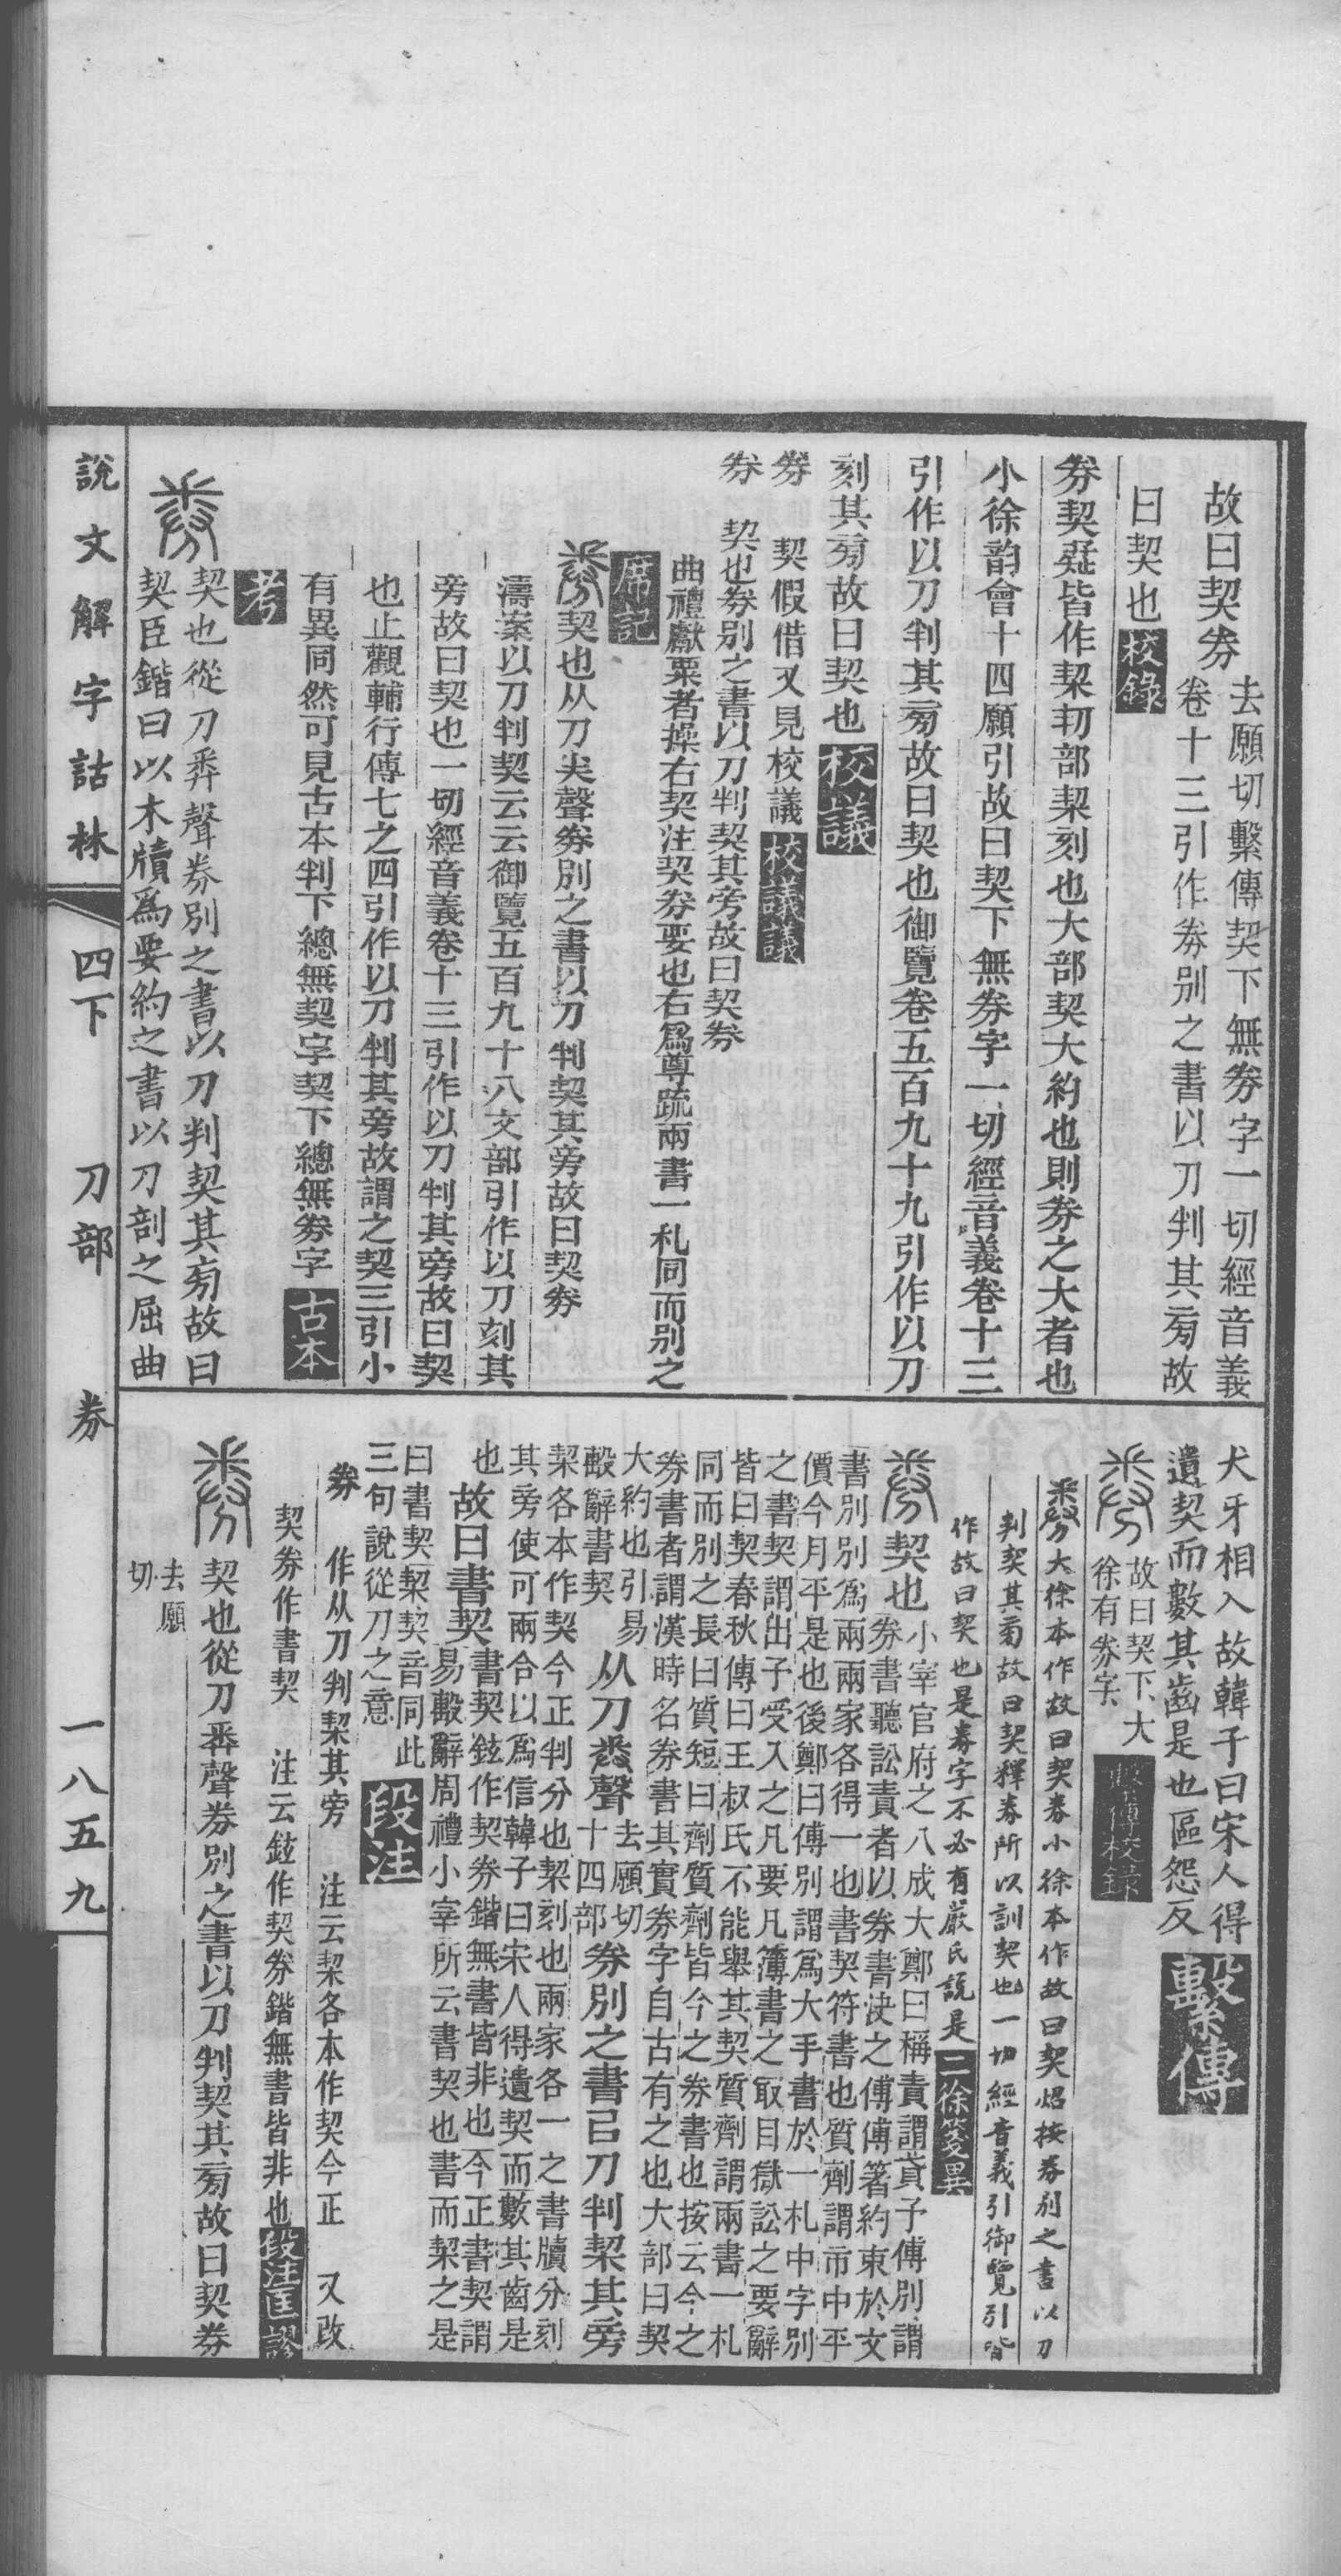 故曰契券去願切繫傳契下無券字一切經音義
卷十三引作券別之書以刀判其㫄故
曰契也校錄
券契疑皆作栔㓞部栔刻也大部契大約也則券之大者也
小徐韵會十四願引故曰契下無券字一切經音義卷十三
引作以刀判其㫄故曰契也御覽卷五百九十九引作以刀
刻其㫄故曰契也校議
券　契假借又見校議校議議
券　契也券別之書以刀判契其旁故曰契券
曲禮獻粟者操右契注契券要也右爲尊疏兩書一札同而別之
席記
契也从刀𢍏聲券別之書以刀判契其旁故曰契券
濤案以刀判契云云御覽五百九十八文部引作以刀刻其
旁故曰契也一切經音義卷十三引作以刀判其旁故曰契
也止觀輔行傳七之四引作以刀判其旁故謂之契三引小
有異同然可見古本判下總無契字契下總無券字古本
考
契也從刀𢍏聲券別之書以刀判契其㫄故曰
契臣鍇曰以木牘爲要約之書以刀剖之屈曲
犬牙相入故韓子曰宋人得
遺契而數其齒是也區怨反繫傳
故曰契下大
徐有券字繫傳校錄
大徐本作故曰契券小徐本作故曰契炤按券別之書以刀
判契其㫄故曰契釋券所以訓契也一切經音義引御覽引皆
作故曰契也是券字不必有嚴氏說是二徐箋異
契也小宰官府之八成大鄭曰稱責謂貸子傅別謂
券書聽訟責者以券書決之傅傅箸約束於文
書別別爲兩兩家各得一也書契符書也質劑謂市中平
價今月平是也後鄭曰傅別謂爲大手書於一札中字別
之書契謂出予受入之凡要凡簿書之取目獄訟之要辭
皆曰契春秋傳曰王叔氏不能舉其契質劑謂兩書一札
同而別之長曰質短曰劑質劑皆今之券書也按云今之
券書者謂漢時名券書其實券字自古有之也大部曰契
大約也引易
毄辭書契从刀𢍏聲去願切
十四部券別之書㠯刀判栔其旁
栔各本作契今正判分也栔刻也兩家各一之書牘分刻
其旁使可兩合以爲信韓子曰宋人得遺契而數其齒是
也故曰書契書契鉉作契券鍇無書皆非也今正書契謂
易毄辭周禮小宰所云書契也書而栔之是
曰書契栔契音同此
三句說從刀之意段注
券　作从刀判栔其旁　注云栔各本作契今正　又改
契券作書契　注云鉉作契券鍇無書皆非也段注匡謬
契也從刀𢍏聲券別之書以刀判契其㫄故曰契券
去願
切
說文解字詁林　四下　刀部　券　一八五九